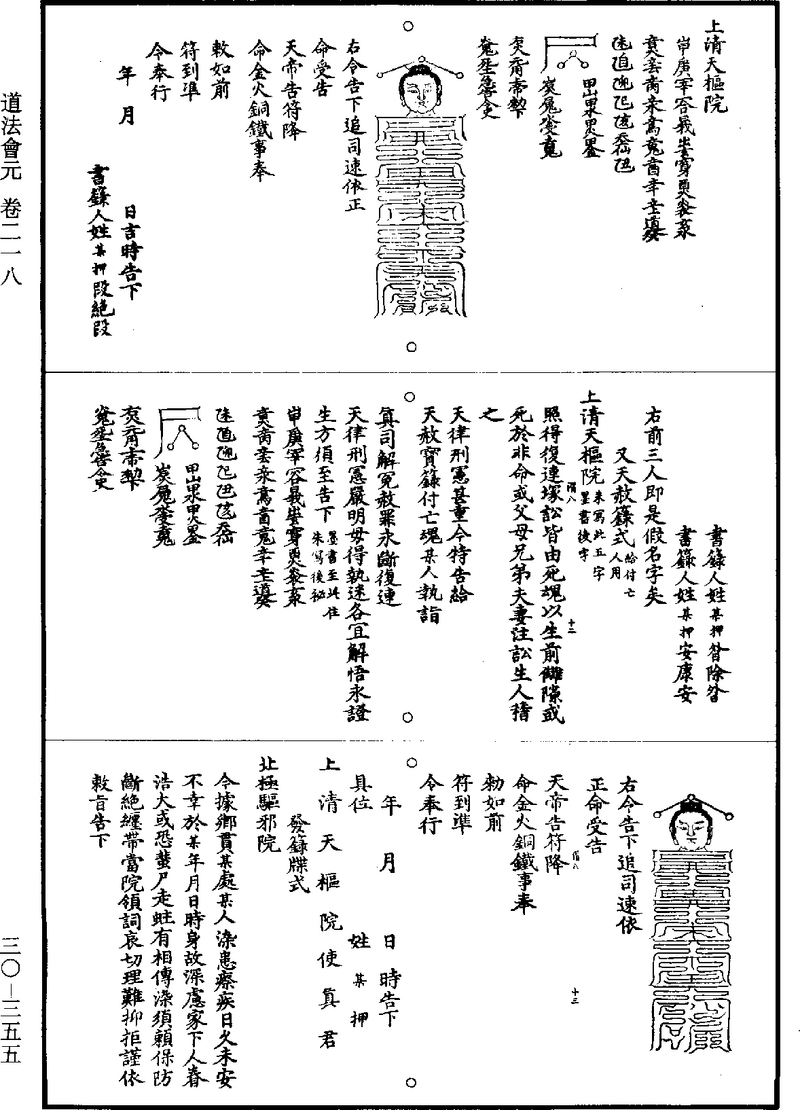 道法會元 卷二一八
三〇—三五五
上清天樞院
右令告下追司速依正
命受告
天帝告符降
命金火銅鐵事奉
敕如前
符到準
令奉行
年 月
日吉時告下
書籙人姓某押段絕段
書籙人姓某押咎除咎
書籙人姓某押安康安
右前三人即是假名字矣
又天赦籙式給付亡人用
上清天樞院朱寫此五字墨書後字
照得復連塚訟皆由死魂以生前讎隙或
死於非命或父母兄弟夫妻注訟生人稽
之
天律刑憲甚重今特告給
天赦寶籙付亡魂某人執詣
真司解冤赦罪永斷復連
天律刑憲嚴明毋得執迷各宜解悟永證
生方須至告下墨書至此住朱寫後祕
右令告下追司速依
正命受告
天帝告符降
命金火銅鐵事奉
勑如前
符到準
令奉行
年 月 日 時告下
具位 姓 某 押
上清天樞院使真君
發籙牒式
北極驅邪院
今據鄉貫某處某人染患瘵疾日久未安
不幸於某年月日時身故深慮家下人眷
浩大或恐蠻尸走蛀有相傳染須賴保防
斷絕纏帶當院領詞哀切理難抑拒謹依
敕旨告下